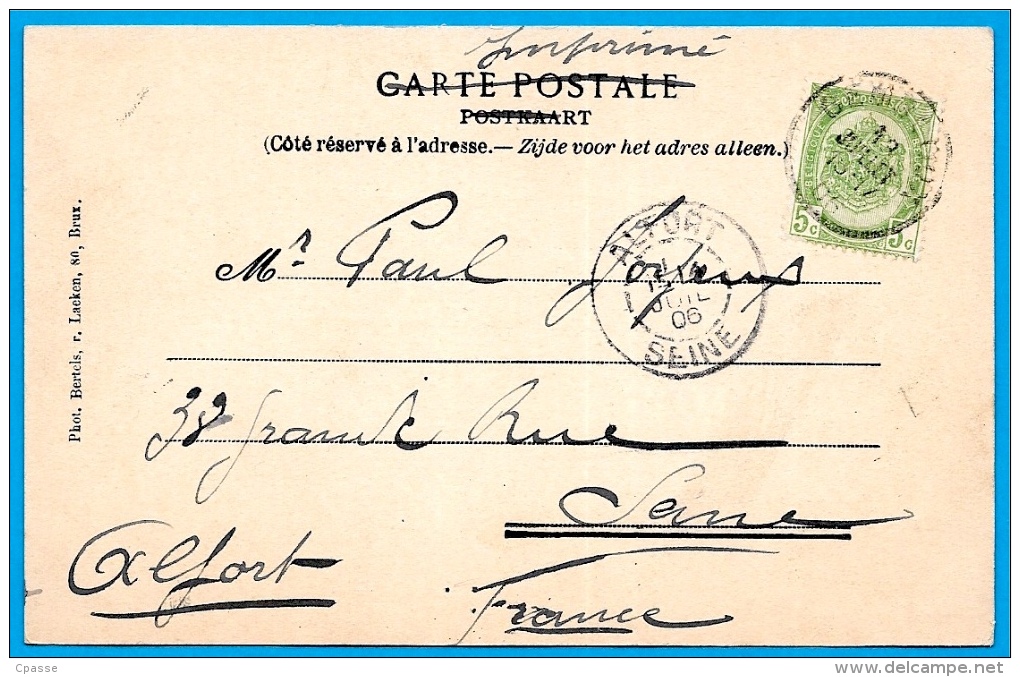 Imprimé
CARTE POSTALE
POSTKAART
(Côté réservé à l'adresse.— Zijde voor het adres alleen.)
5c 5c
ALFORT
JUIL
06
SEINE
Phot. Bertels, r. Laeken, 80, Brux.
Mr Paul
38 grande Rue
Seine
Alfort
France
Cpasse
www.delcampe.net